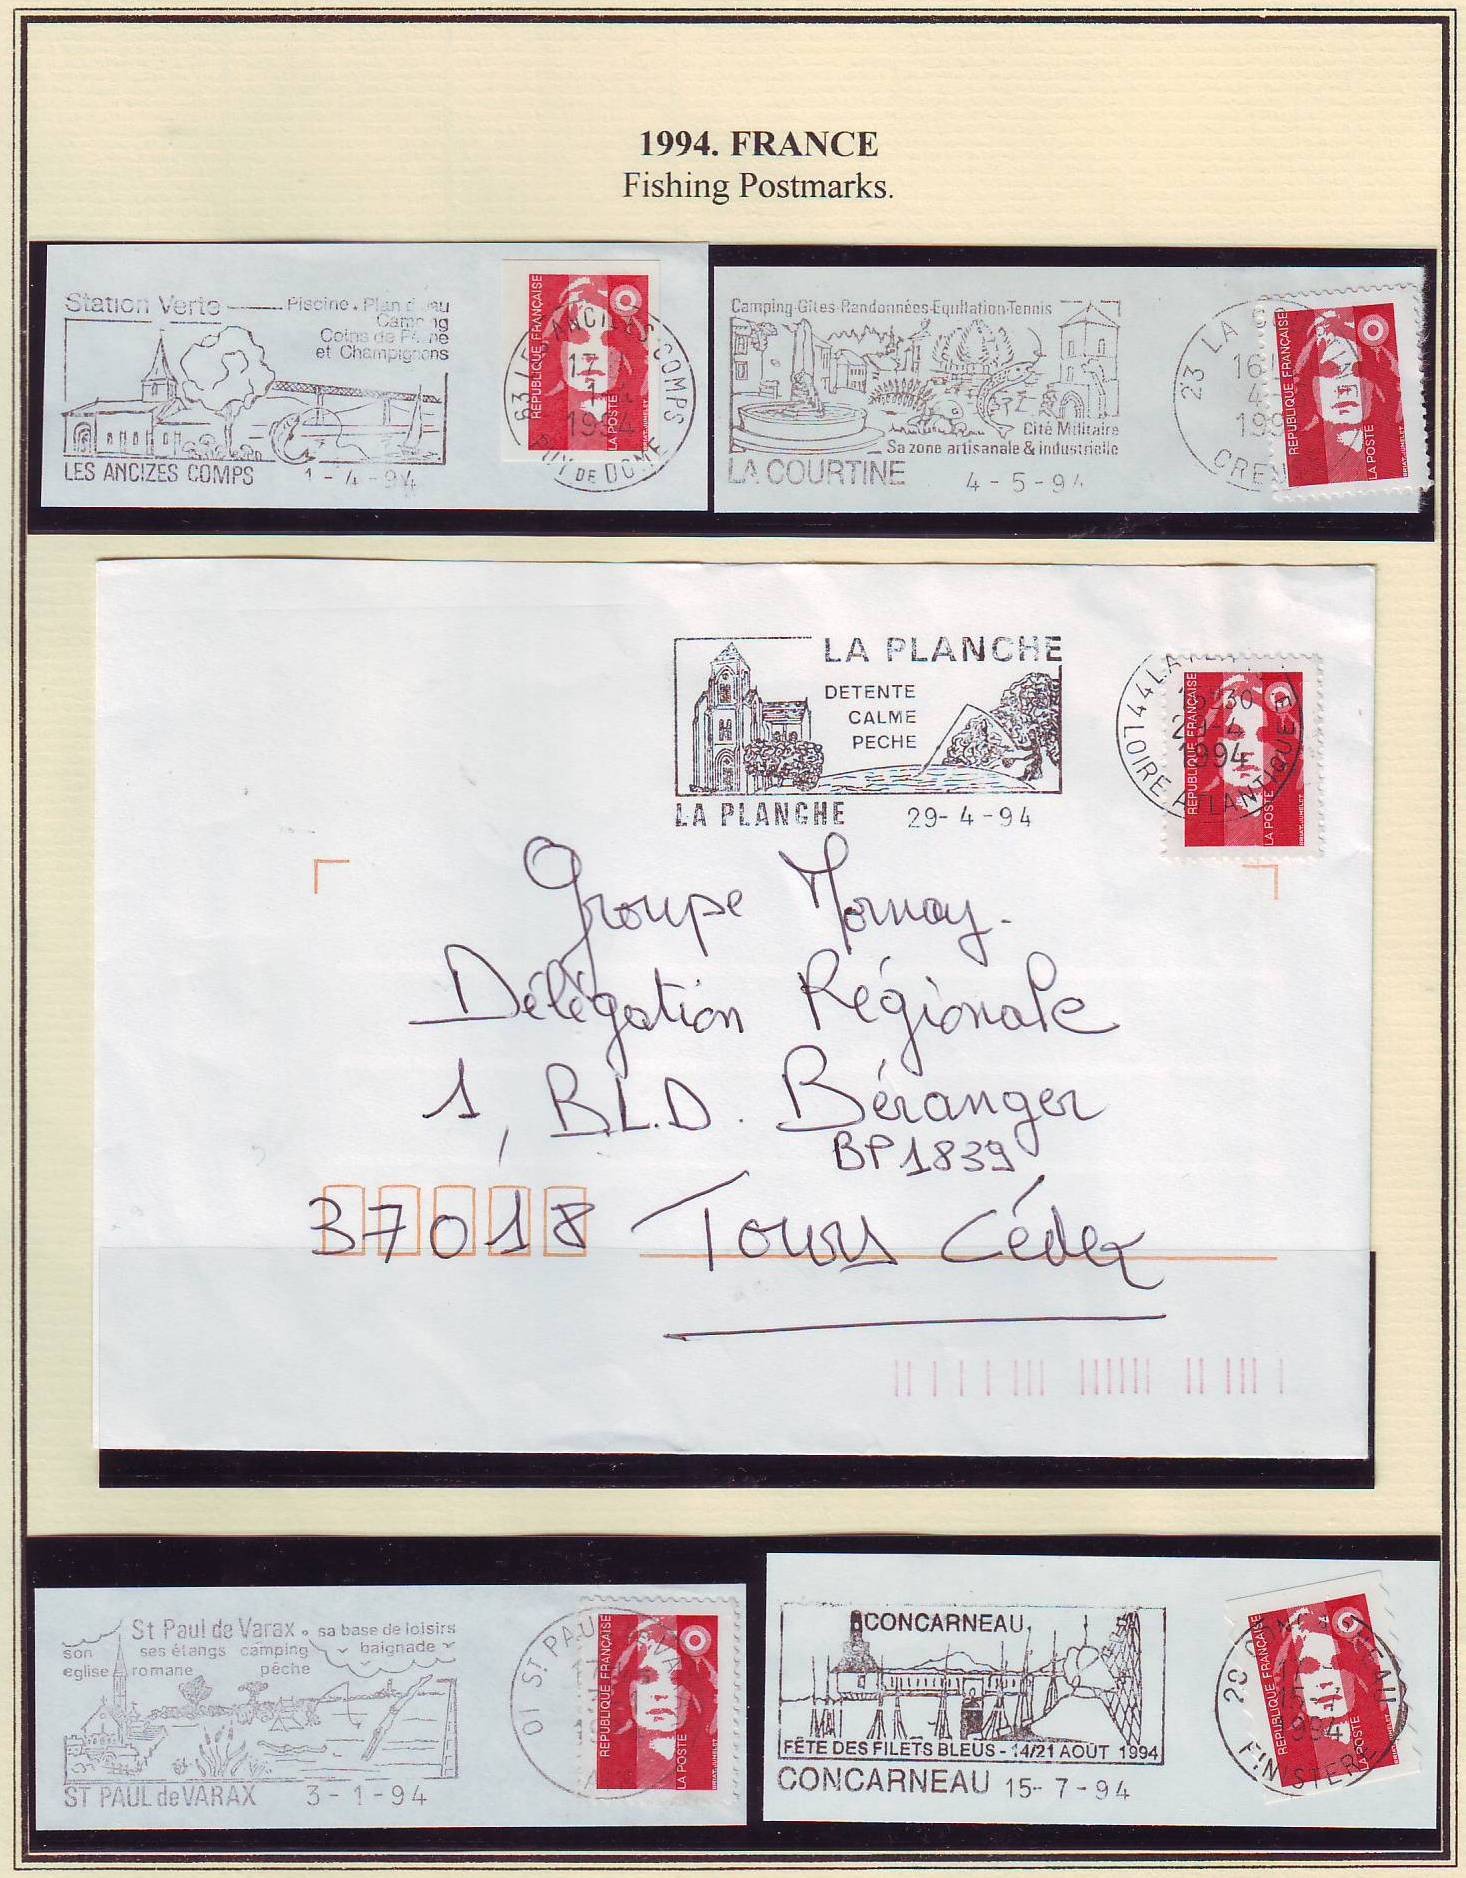 1994. FRANCE
Fishing Postmarks.
Station Verte
Piscine. Plan d'eau
Camping
Coins de Pêche
et Champignons
LES ANCIZES COMPS 1-4-94
63 LES ANCIZES COMPS
17
1
1994
PUY DE DOME
REPUBLIQUE FRANÇAISE
LA POSTE
Camping-Gîtes-Randonnées-Equitation-Tennis
Cité Militaire
Sa zone artisanale & industrielle
LA COURTINE 4-5-94
23 LA
16
4
199
CREU
REPUBLIQUE FRANÇAISE
LA POSTE
BRIAT-JUMELET
LA PLANCHE
DETENTE
CALME
PECHE
LA PLANCHE 29-4-94
44 LA
30
2 -4
1994
LOIRE ATLANTIQUE
REPUBLIQUE FRANÇAISE
LA POSTE
BRIAT-JUMELET
Groupe Mornay.
Délégation Régionale
1, B.L.D. Béranger
BP1839
37018 Tours Cédex
St Paul de Varax. sa base de loisirs
son ses étangs camping baignade
eglise romane pêche
ST PAUL de VARAX 3-1-94
01 ST PAUL VARA
REPUBLIQUE FRANÇAISE
LA POSTE
BRIAT-JUMELET
CONCARNEAU
FÊTE DES FILETS BLEUS - 14/21 AOUT 1994
CONCARNEAU 15-7-94
29 CONCARNEAU
994
FINISTERE
REPUBLIQUE FRANÇAISE
LA POSTE
BRIAT-JUMELET